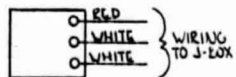 RED
WHITE
WHITE
WIRING
TO J-BOX